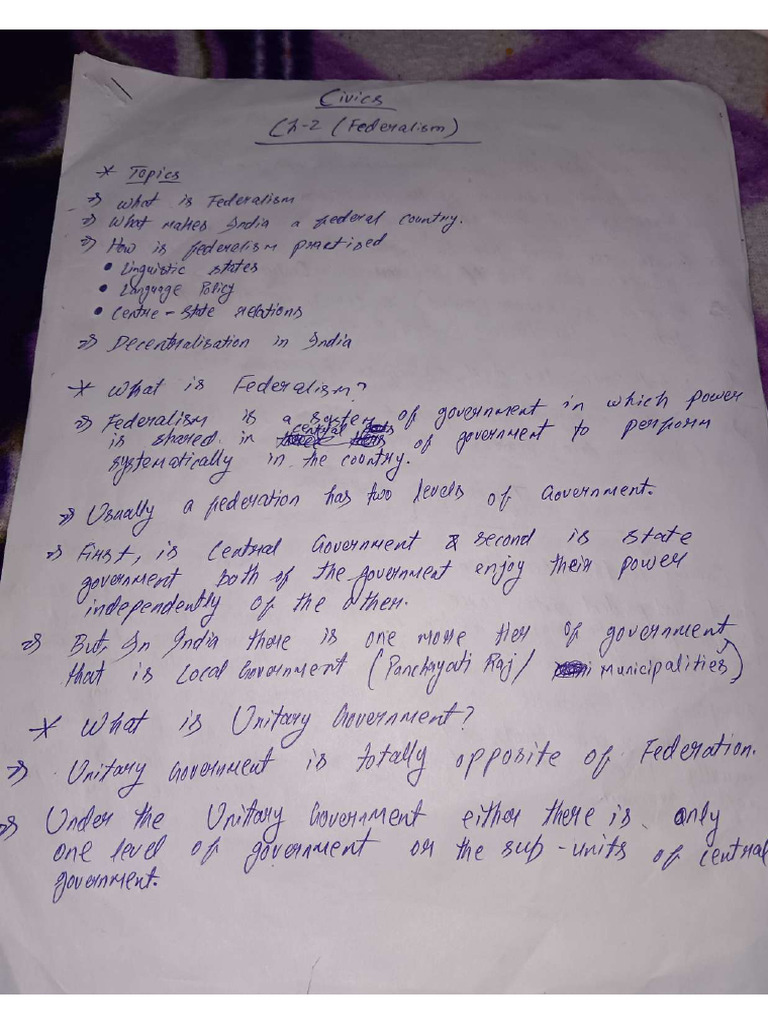 Civics
Ch-2 (Federalism)
* Topics
⇒ What is Federalism
⇒ What makes India a federal country.
⇒ How is federalism practised
• Linguistic states
• Language Policy
• Centre-State relations
⇒ Decentralisation in India
* What is Federalism?
⇒ Federalism is a system of government in which power
is shared in central of government to perform
systematically in the country.
⇒ Usually a federation has two levels of Government.
⇒ First, is Central Government & second is state
government both of the government enjoy their power
independently of the other.
⇒ But, In India there is one more tier of government
that is Local Government (Panchayati Raj/ Municipalities)
* What is Unitary Government?
⇒ Unitary Government is totally opposite of Federation.
⇒ Under the Unitary Government either there is only
one level of government or the sub-units of central
government.